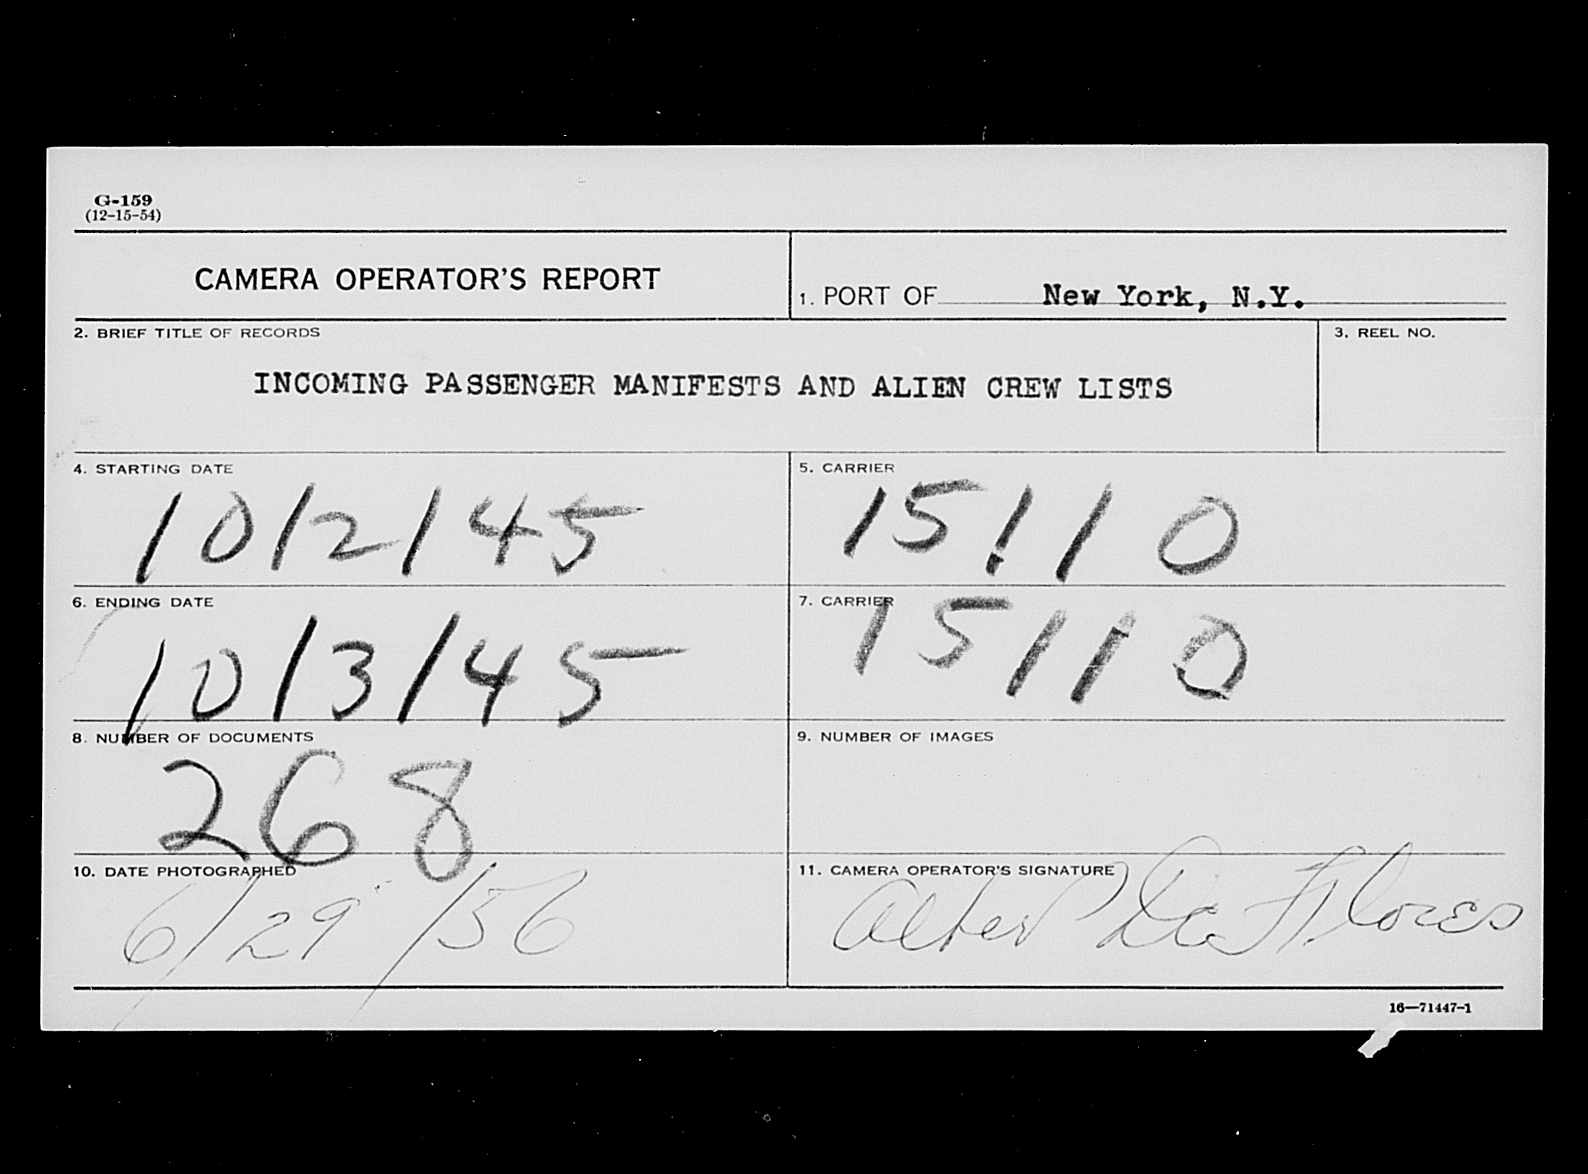 G-159
(12-15-54)
CAMERA OPERATOR'S REPORT
1. PORT OF New York, N.Y.
2. BRIEF TITLE OF RECORDS
3. REEL NO.
INCOMING PASSENGER MANIFESTS AND ALIEN CREW LISTS
4. STARTING DATE
10/2/45
5. CARRIER
15110
6. ENDING DATE
10/3/45
7. CARRIER
15110
8. NUMBER OF DOCUMENTS
268
9. NUMBER OF IMAGES
10. DATE PHOTOGRAPHED
6/29/56
11. CAMERA OPERATOR'S SIGNATURE
16—71447-1